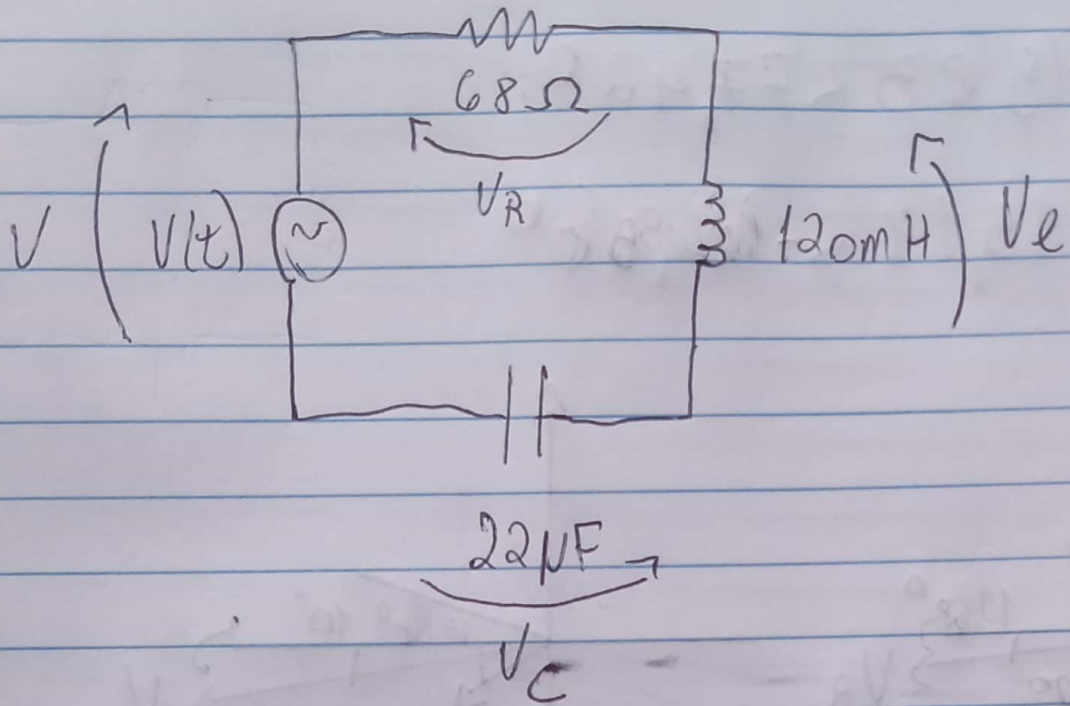 68Ω
V V(t) ~ V_R 120mH Ve
22µF
V_C